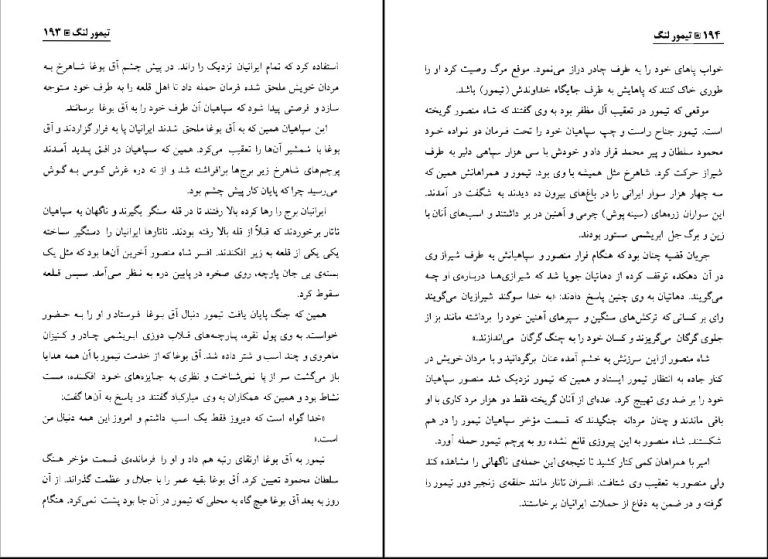 تیمور لنگ ◙ ۱۹۳
استفاده کرد که تمام ایرانیان نزدیک را راند. در پیش چشم آق بوغا شاهرخ به
مردان خویش ملحق شده فرمان حمله داد تا اهل قلعه را به طرف خود متوجه
سازد و فرصتی پیدا شود که سپاهیان آن طرف خود را به آق بوغا برسانند.
این سپاهیان همین که به آق بوغا ملحق شدند ایرانیان پا به فرار گزاردند و آق
بوغا با شمشیر آن‌ها را تعقیب می‌کرد. همین که سپاهیان در افق پدید آمدند
پرچم‌های شاهرخ زیر برج‌ها برافراشته شد و از ته دره غرش کوس به گوش
می‌رسید چرا که پایان کار پیش چشم بود.
ایرانیان برج را رها کرده بالا رفتند تا در قله سنگر بگیرند و ناگهان به سپاهیان
تاتار برخوردند که قبلاً از قله بالا رفته بودند. تاتارها ایرانیان را دستگیر ساخته
یکی یکی از قلعه به زیر افکندند. افسر شاه منصور آخرین آن‌ها بود که مثل یک
بسته‌ی بی جان پارچه، روی صخره در پایین دره به نظر می‌آمد. سپس قلعه
سقوط کرد.
همین که جنگ پایان یافت تیمور دنبال آق بوغا فرستاد و او را به حضور
خواست. به وی پول نقره، پارچه‌های قلاب دوزی ابریشمی چادر و کنیزان
ماهروی و چند اسب و شتر داده شد. آق بوغا که از خدمت تیمور با آن همه هدایا
باز می‌گشت سر از پا نمی‌شناخت و نظری به جایزه‌های خود افکنده، مست
نشاط بود و همین که همکاران به وی مبارکباد گفتند در پاسخ به آن‌ها گفت:
«خدا گواه است که دیروز فقط یک اسب داشتم و امروز این همه دنبال من
است.»
تیمور به آق بوغا ارتقای رتبه هم داد و او را فرمانده‌ی قسمت مؤخر هنگ
سلطان محمود تعیین کرد. آق بوغا بقیه عمر را با جلال و عظمت گذراند. از آن
روز به بعد آق بوغا هیچ گاه به محلی که تیمور در آن جا بود پشت نمی‌کرد. هنگام
۱۹۴ ◙ تیمور لنگ
خواب پاهای خود را به طرف چادر دراز می‌نمود. موقع مرگ وصیت کرد او را
طوری خاک کنند که پاهایش به طرف جایگاه خداوندش (تیمور) باشد.
موقعی که تیمور در تعقیب آل مظفر بود به وی گفتند که شاه منصور گریخته
است. تیمور جناح راست و چپ سپاهیان خود را تحت فرمان دو نواده خود
محمود سلطان و پیر محمد قرار داد و خودش با سی هزار سپاهی دلیر به طرف
شیراز حرکت کرد. شاهرخ مثل همیشه با وی بود. تیمور و همراهانش همین که
سه چهار هزار سوار ایرانی را در باغ‌های بیرون ده دیدند به شگفت در آمدند.
این سواران زره‌های (سینه پوش) چرمی و آهنین در بر داشتند و اسب‌های آنان با
زین و برگ جل ابریشمی مستور بودند.
جریان قضیه چنان بود که هنگام فرار منصور و سپاهیانش به طرف شیراز وی
در آن دهکده توقف کرده از دهاتیان جویا شد که شیرازی‌ها درباره‌ی او چه
می‌گویند. دهاتیان به وی چنین پاسخ دادند: «به خدا سوگند شیرازیان می‌گویند
وای بر کسانی که ترکش‌های سنگین و سپرهای آهنین خود را برداشته مانند بز از
جلوی گرگان می‌گریزند و کسان خود را به چنگ گرگان می‌اندازند.»
شاه منصور از این سرزنش به خشم آمده عنان برگردانید و با مردان خویش در
کنار جاده به انتظار تیمور ایستاد و همین که تیمور نزدیک شد منصور سپاهیان
خود را بر ضد وی تهییج کرد. عده‌ای از آنان گریخته فقط دو هزار مرد کاری با او
باقی ماندند و چنان مردانه جنگیدند که قسمت مؤخر سپاهیان تیمور را در هم
شکستند. شاه منصور به این پیروزی قانع نشده رو به پرچم تیمور حمله آورد.
امیر با همراهان کمی کنار کشید تا نتیجه‌ی این حمله‌ی ناگهانی را مشاهده کند
ولی منصور به تعقیب وی شتافت. افسران تاتار مانند حلقه‌ی زنجیر دور تیمور را
گرفته و در ضمن به دفاع از حملات ایرانیان بر خاستند.